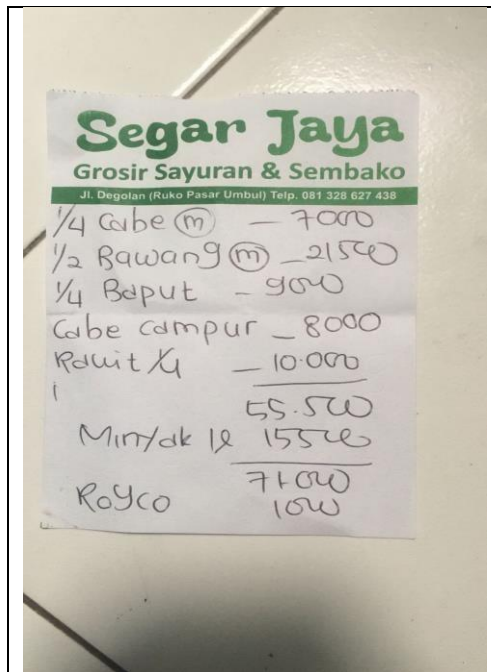 Segar Jaya
Grosir Sayuran & Sembako
Jl. Degolan (Ruko Pasar Umbul) Telp. 081 328 627 438
1/4 Cabe (m) — 7000
1/2 Bawang (m) — 21500
1/4 Baput — 9000
Cabe campur — 8000
Rawit 1/4 — 10.000
55.500
Minyak 1l 15500
71000
Royco 1000